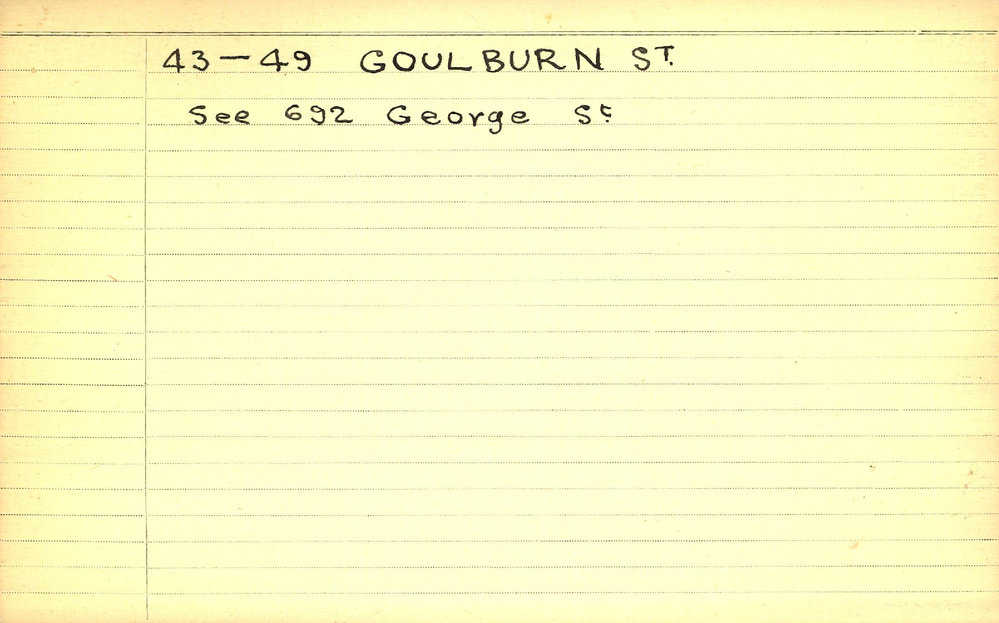 43-49 GOULBURN ST.
See 692 George St